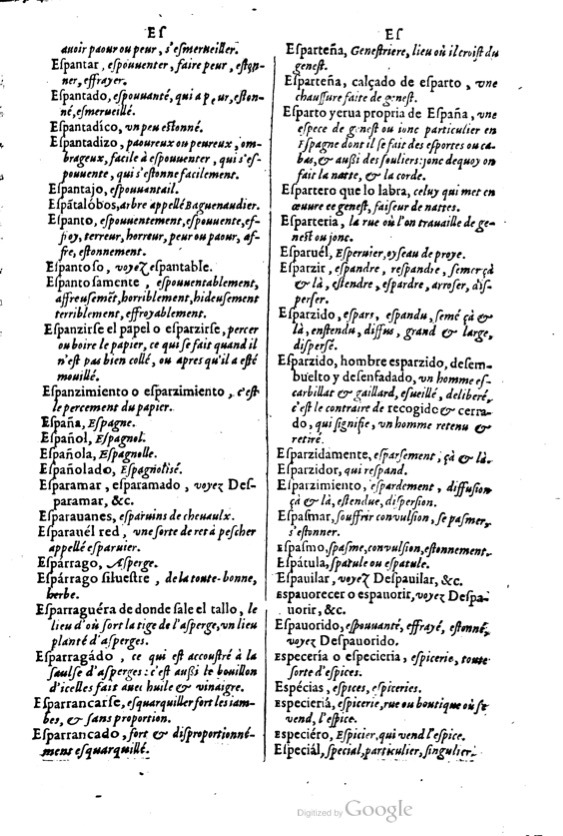 ES
auoir paour ou peur, s'esmerueiller.
Espantar, espouuenter, faire peur, eston-
ner, effrayer.
Espantado, espouuanté, qui a peur, eston-
né, esmerueillé.
Espantadico, vn peu estonné.
Espantadizo, paoureux ou peureux, om-
brageux, facile à espouuenter, qui s'es-
pouuente, qui s'estonne facilement.
Espantajo, espouuantail.
Espãtalóbos, arbre appellé Baguenaudier.
Espanto, espouuentement, espouuente, ef-
froy, terreur, horreur, peur ou paour, af-
fre, estonnement.
Espantoso, voyez espantable.
Espantosamente, espouuentablement,
affreusemẽt, horriblement, hideusement
terriblement, effroyablement.
Espanzirse el papel o esparzirse, percer
ou boire le papier, ce qui se fait quand il
n'est pas bien collé, ou apres qu'il a esté
mouillé.
Espanzimiento o esparzimiento, c'est
le percement du papier.
España, Espagne.
Español, Espagnol.
Española, Espagnolle.
Españolado, Espagnolisé.
Esparamar, esparamado, voyez Des-
paramar, &c.
Esparauanes, esparuins de cheuaulx.
Esparauél red, vne sorte de ret à pescher
appellé esparuier.
Espárrago, Asperge.
Espárrago siluestre, de la toute-bonne,
herbe.
Esparraguéra de donde sale el tallo, le
lieu d'où sort la tige de l'asperge, vn lieu
planté d'asperges.
Esparragádo, ce qui est accoustré à la
saulse d'asperges: c'est aussi le bouillon
d'icelles fait auec huile & vinaigre.
Esparrancarse, esquarquiller fort les iam-
bes, & sans proportion.
Esparrancado, fort & disproportionné-
ment esquarquillé.
ES
Esparteña, Genestriere, lieu où il croist du
genest.
Esparteña, calçado de esparto, vne
chaussure faite de genest.
Esparto yerua propria de España, vne
espece de genest ou ionc particulier en
Espagne dont il se fait des esportes ou ca-
bas, & aussi des souliers: jonc dequoy on
fait la natte, & la corde.
Espartero que lo labra, celuy qui met en
œuure ce genest, faiseur de nattes.
Esparteria, la rue où l'on trauaille de ge-
nest ou jonc.
Esparuél, Esperuier, oyseau de proye.
Esparzir, espandre, respandre, semer çà
& là, estendre, espardre, arroser, dis-
perser.
Esparzido, espars, espandu, semé çà &
là, enstendu, diffus, grand & large,
dispersé.
Esparzido, hombre esparzido, desem-
buelto y desenfadado, vn homme es-
carbillat & gaillard, esueillé, deliberé,
c'est le contraire de recogido & cerra-
do, qui signifie, vn homme retenu &
retiré.
Esparzidamente, esparsement, çà & là.
Esparzidor, qui respand.
Esparzimiento, espardement, diffusion
çà & là, estendue, dispersion.
Espasmar, souffrir convulsion, se pasmer,
s'estonner.
Espasmo, spasme, convulsion, estonnement.
Espátula, spatule ou espatule.
Espauilar, voyez Despauilar, &c.
Espauorecer o espauorir, voyez Despa-
uorir, &c.
Espauorido, espouuanté, effrayé, estonné,
voyez Despauorido.
Especería o especieria, espicerie, toute
sorte d'espices.
Espécias, espices, espiceries.
Especieriá, espicerie, rue ou boutique où se
vend, l'espice.
Especiéro, Espicier, qui vend l'espice.
Especiál, special, particulier, singulier.
Digitized by Google